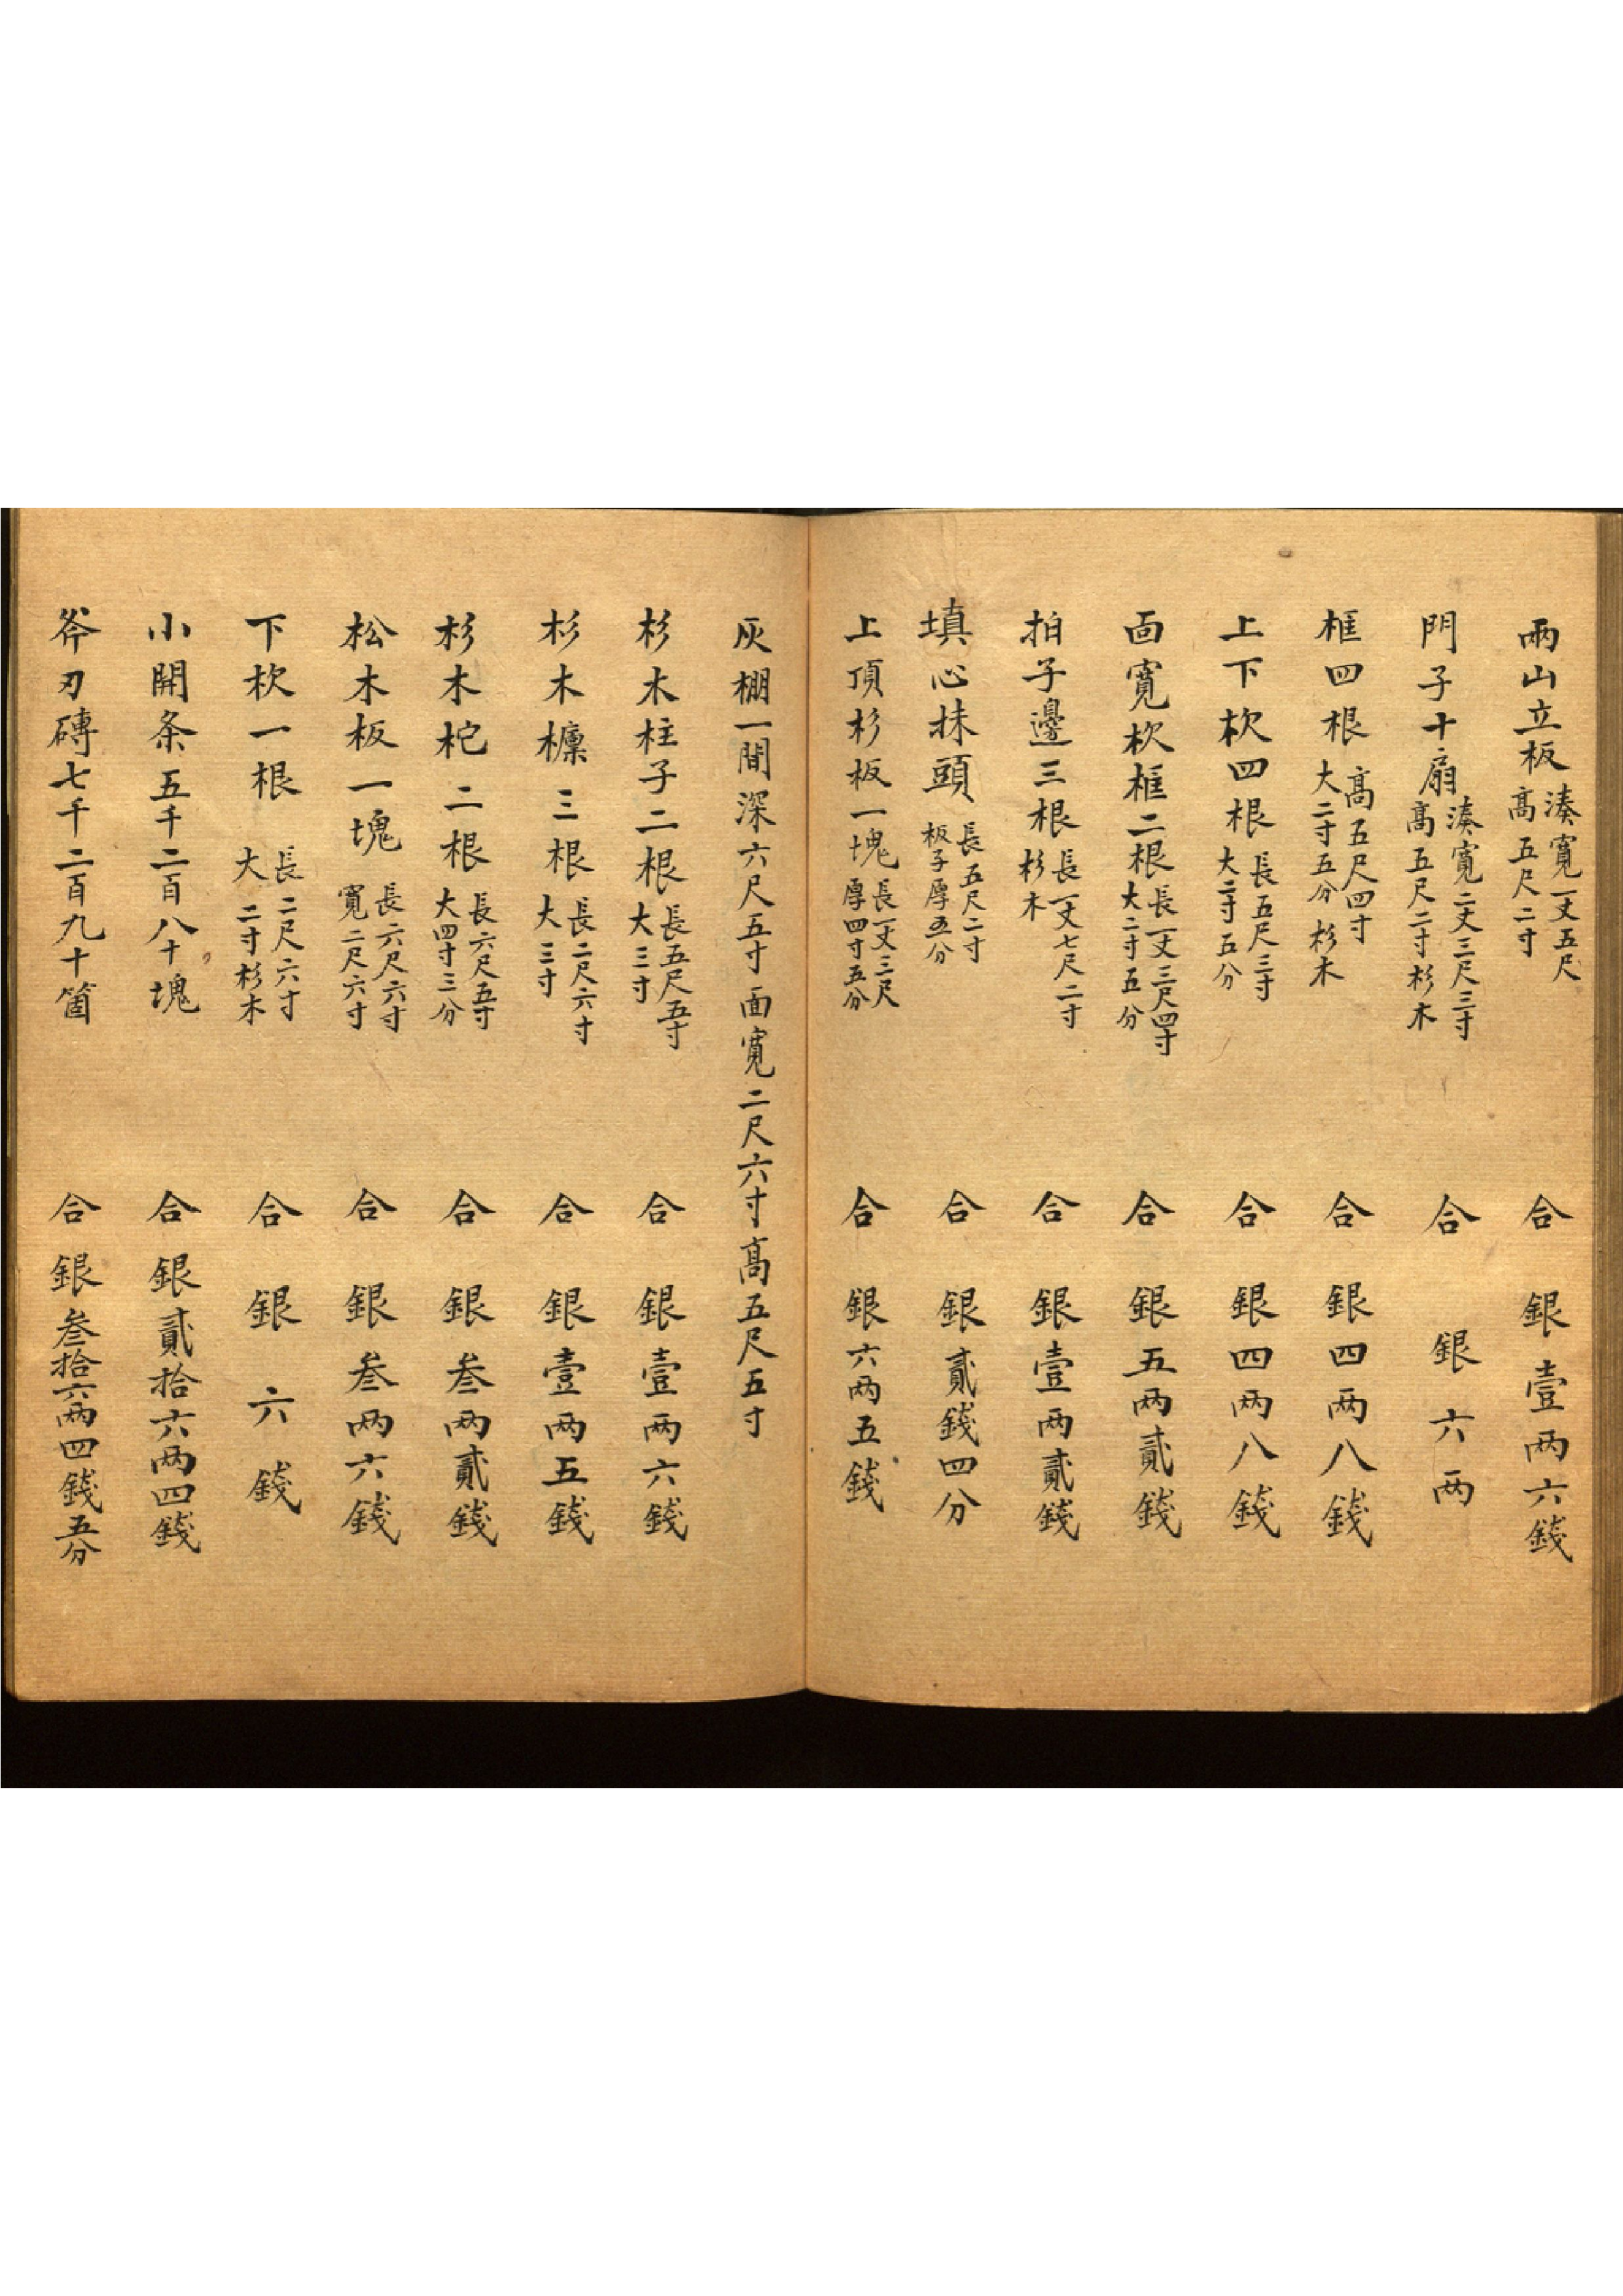 兩山立板湊寬一丈五尺高五尺二寸 合 銀壹两六錢
門子十扇湊寬二丈三尺三寸高五尺二寸杉木 合 銀六两
框四根高五尺四寸大二寸五分杉木 合 銀四两八錢
上下杴四根長五尺三寸大二寸五分 合 銀四两八錢
面寬杴框二根長一丈三尺四寸大二寸五分 合 銀五两貳錢
拍子邊三根長一丈七尺二寸杉木 合 銀壹两貳錢
填心抹頭長五尺二寸板子厚五分 合 銀貳錢四分
上頂杉板一塊長一丈三尺厚四寸五分 合 銀六两五錢
灰棚一間深六尺五寸面寬二尺六寸高五尺五寸
杉木柱子二根長五尺五寸大三寸 合 銀壹两六錢
杉木檁三根長二尺六寸大三寸 合 銀壹两五錢
杉木柁二根長六尺五寸大四寸三分 合 銀叁两貳錢
松木板一塊長六尺六寸寬二尺六寸 合 銀叁两六錢
下杴一根長二尺六寸大二寸杉木 合 銀六錢
小開条五千二百八十塊 合 銀貳拾六两四錢
斧刃磚七千二百九十箇 合 銀叁拾六两四錢五分